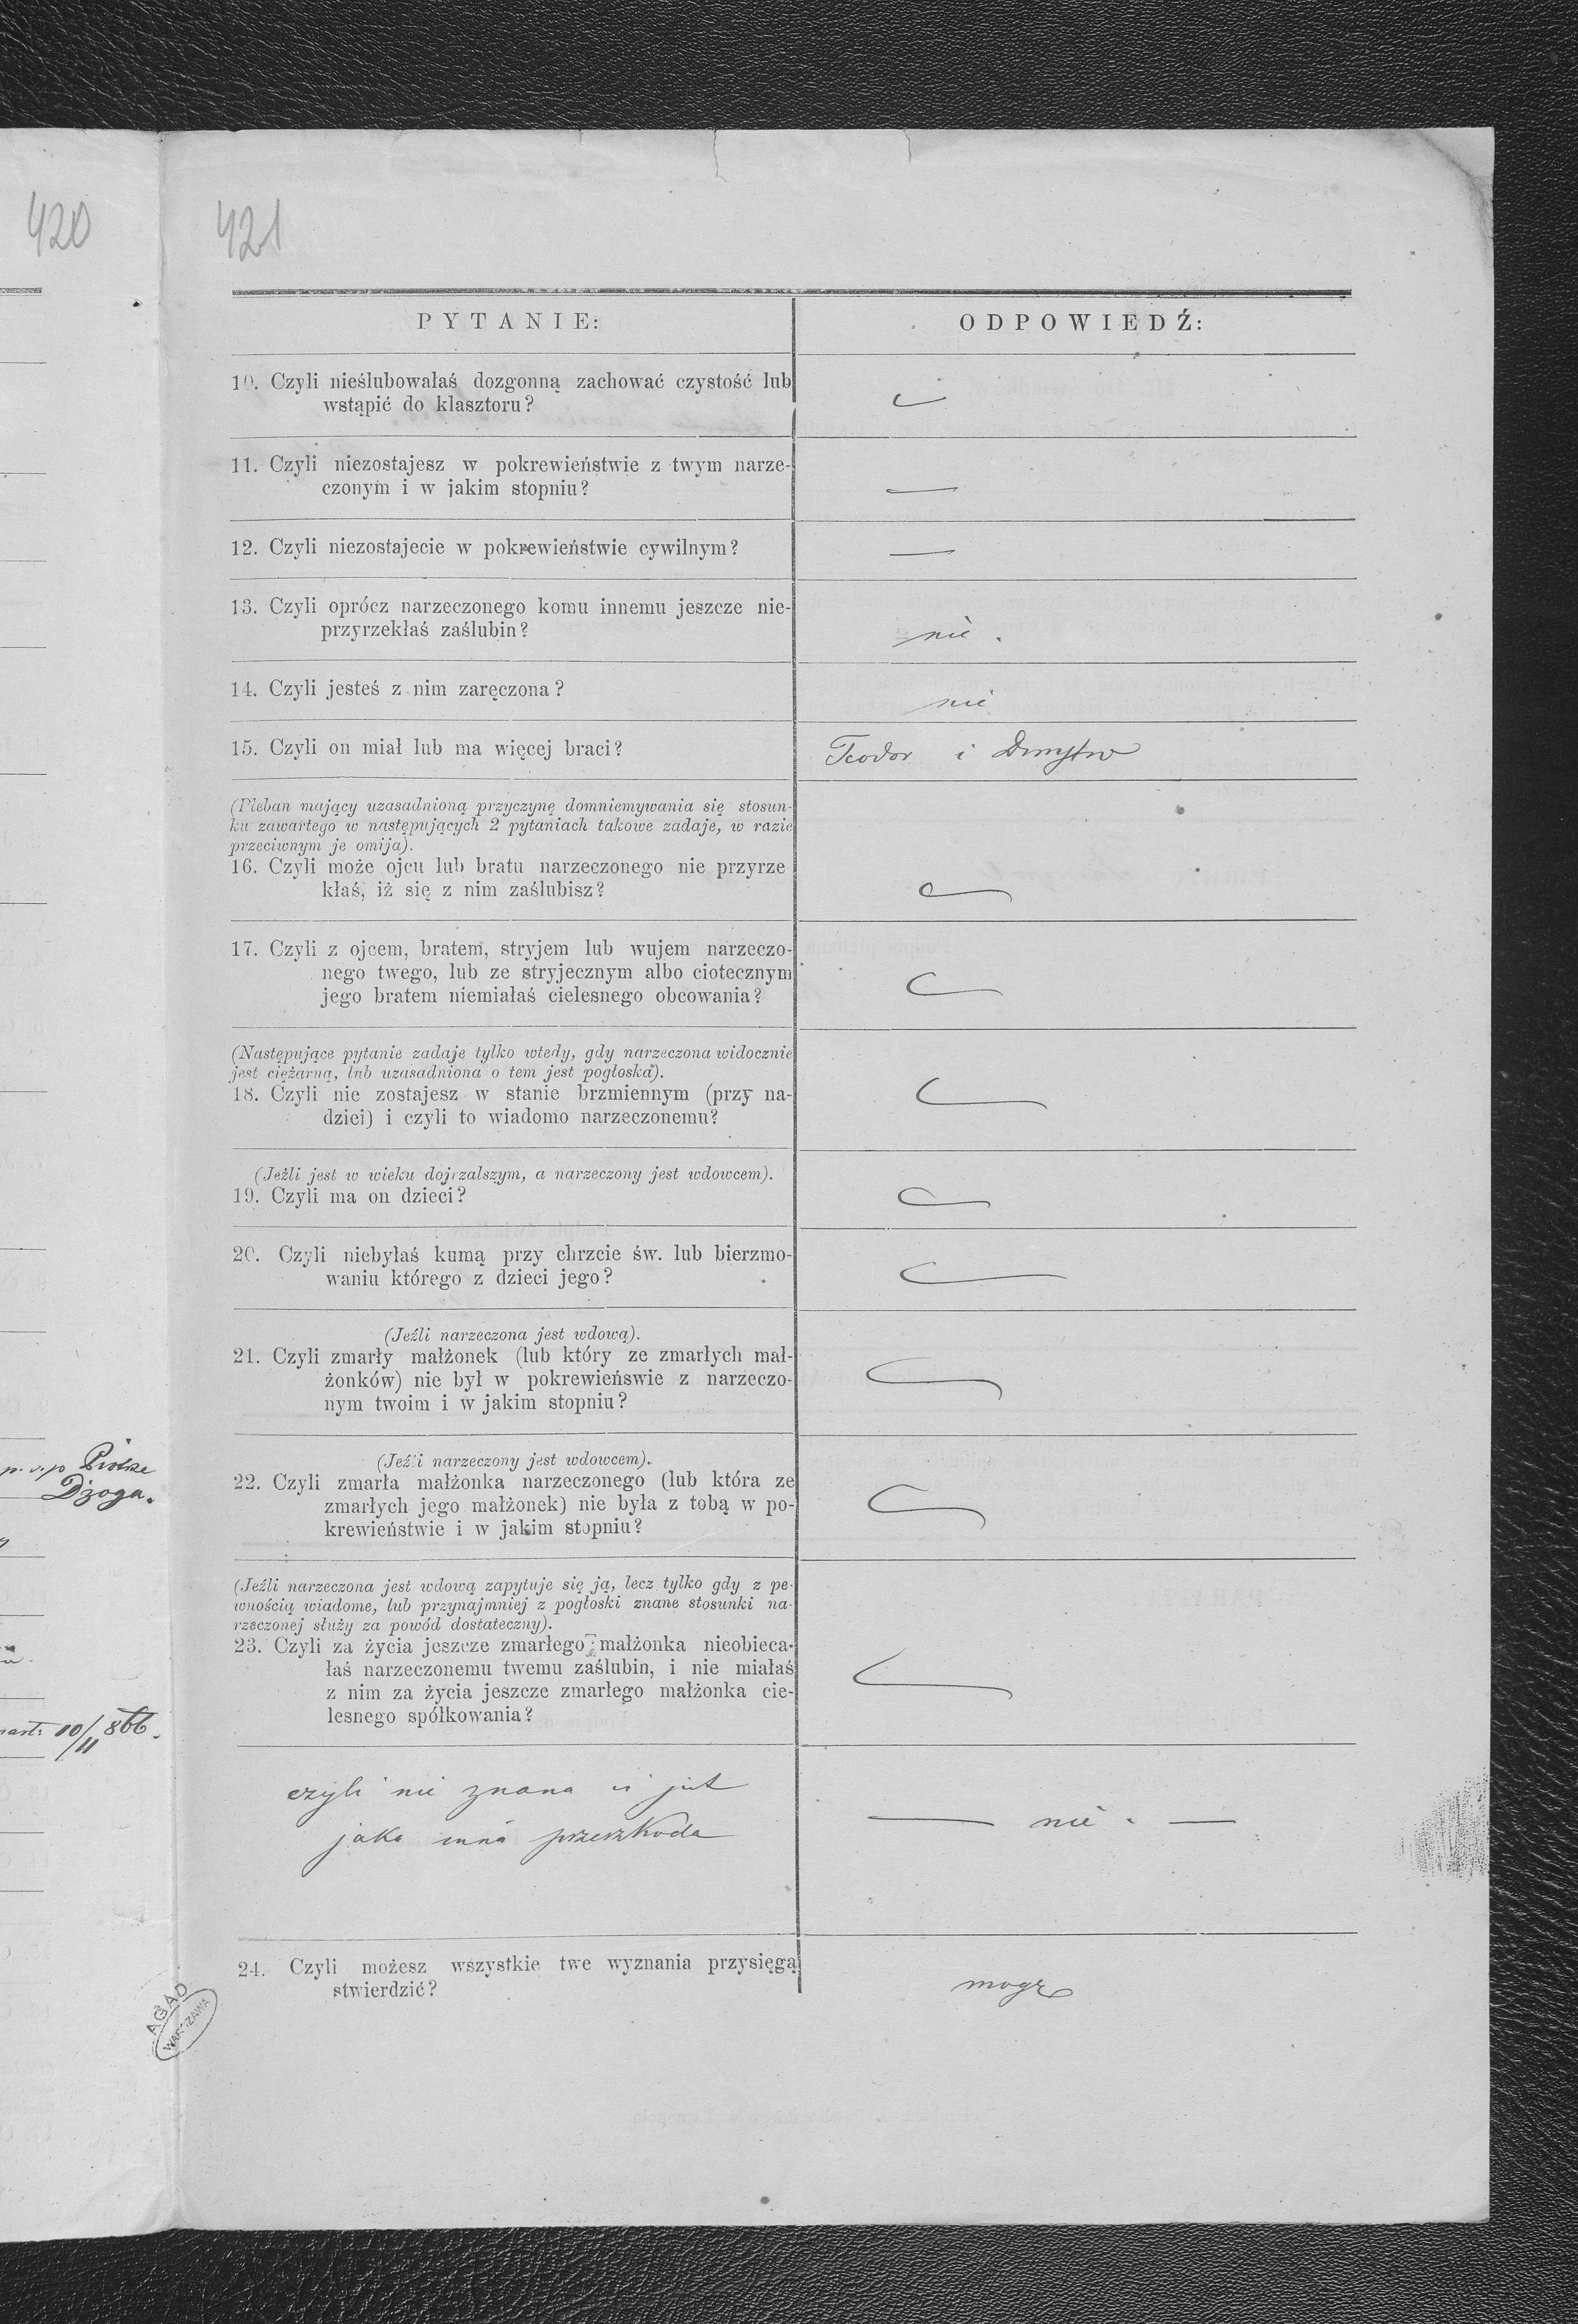 420
421
PYTANIE:
ODPOWIEDŹ:
10. Czyli nieślubowałaś dozgonną zachować czystość lub
wstąpić do klasztoru?
11. Czyli niezostajesz w pokrewieństwie z twym narze-
czonym i w jakim stopniu?
—
12. Czyli niezostajecie w pokrewieństwie cywilnym?
—
13. Czyli oprócz narzeczonego komu innemu jeszcze nie-
przyrzekłaś zaślubin?
nie.
14. Czyli jesteś z nim zaręczona?
nie
15. Czyli on miał lub ma więcej braci?
Teodor i Dmytro
(Pleban mający uzasadnioną przyczynę domniemywania się stosun-
ku zawartego w następujących 2 pytaniach takowe zadaje, w razie
przeciwnym je omija).
16. Czyli może ojcu lub bratu narzeczonego nie przyrze
kłaś, iż się z nim zaślubisz?
17. Czyli z ojcem, bratem, stryjem lub wujem narzeczo-
nego twego, lub ze stryjecznym albo ciotecznym
jego bratem niemiałaś cielesnego obcowania?
(Następujące pytanie zadaje tylko wtedy, gdy narzeczona widocznie
jest ciężarną, lub uzasadniona o tem jest pogłoska).
18. Czyli nie zostajesz w stanie brzmiennym (przy na-
dziei) i czyli to wiadomo narzeczonemu?
(Jeżli jest w wieku dojrzalszym, a narzeczony jest wdowcem).
19. Czyli ma on dzieci?
20. Czyli niebyłaś kumą przy chrzcie św. lub bierzmo-
waniu którego z dzieci jego?
(Jeźli narzeczona jest wdową).
21. Czyli zmarły małżonek (lub który ze zmarłych mał-
żonków) nie był w pokrewieńswie z narzeczo-
nym twoim i w jakim stopniu?
(Jeźli narzeczony jest wdowcem).
22. Czyli zmarła małżonka narzeczonego (lub która ze
zmarłych jego małżonek) nie była z tobą w po-
krewieństwie i w jakim stopniu?
(Jeźli narzeczona jest wdową zapytuje się ją, lecz tylko gdy z pe-
wnością wiadome, lub przynajmniej z pogłoski znane stosunki na-
rzeczonej służy za powód dostateczny).
23. Czyli za życia jeszcze zmarłego małżonka nieobieca-
łaś narzeczonemu twemu zaślubin, i nie miałaś
z nim za życia jeszcze zmarłego małżonka cie-
lesnego spółkowania?
czyli nie znana ci jest
jaka inna przeszkoda
— nie. —
24. Czyli możesz wszystkie twe wyznania przysięgą
stwierdzić?
mogę
Dżoga.
10/11 866.
AGAD
WARSZAWA